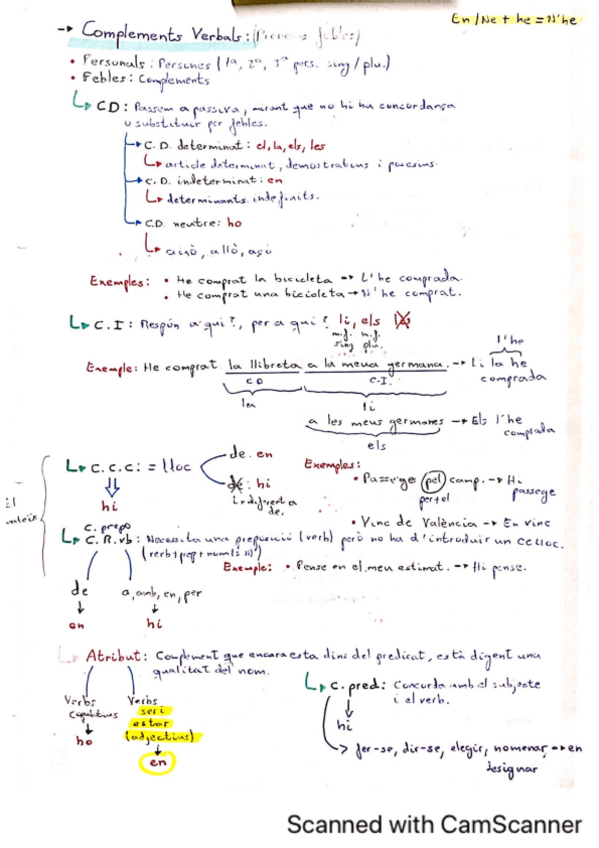 En/Ne + he = N'he
→ Complements Verbals: (Pronoms febles)
• Personals: Persones (1ª, 2ª, 3ª pers. sing/plu.)
• Febles: Complements
↳ CD: Passem a passiva, mirant que no hi ha concordança
o substituir per febles.
→ C.D. determinat: el, la, els, les
↳ article determinat, demostratius i
→ C.D. indeterminat: en
↳ determinants indefinits.
→ C.D. neutre: ho
↳ això, allò, açò
Exemples: • He comprat la bicicleta → L'he comprada.
• He comprat una bicicleta → N'he comprat.
↳ C.I: Respón a qui?, per a qui? li, els
m.f. m.f.
sing plu.
l'he
Exemple: He comprat la llibreta a la meua germana. → Li la he
comprada
CD C.I.
la li
a les meus germanes → Els l'he
comprada
els
↳ C.C.C: = lloc
de: en
de: hi
indiferent a
de.
hi
Exemples:
• Passege pel camp. → Hi
passege
per+el
• Vinc de València → En vinc
El
mateix
C. prepo
↳ C.R.vb: Necessita una preposició (verb) però no ha d'introduir un CCLloc.
(verb+prep+nom/s
Exemple: • Pense en el meu estimat. → Hi pense.
de a, amb, en, per
en hi
↳ Atribut: Complement que encara esta dins del predicat, està digent una
qualitat del nom.
Verbs
Copulatius
ho
Verbs
ser i
estar
(adjectius)
en
↳ C. pred: Concorda amb el subjecte
i el verb.
hi
→ fer-se, dir-se, elegir, nomenar, → en
designar
Scanned with CamScanner